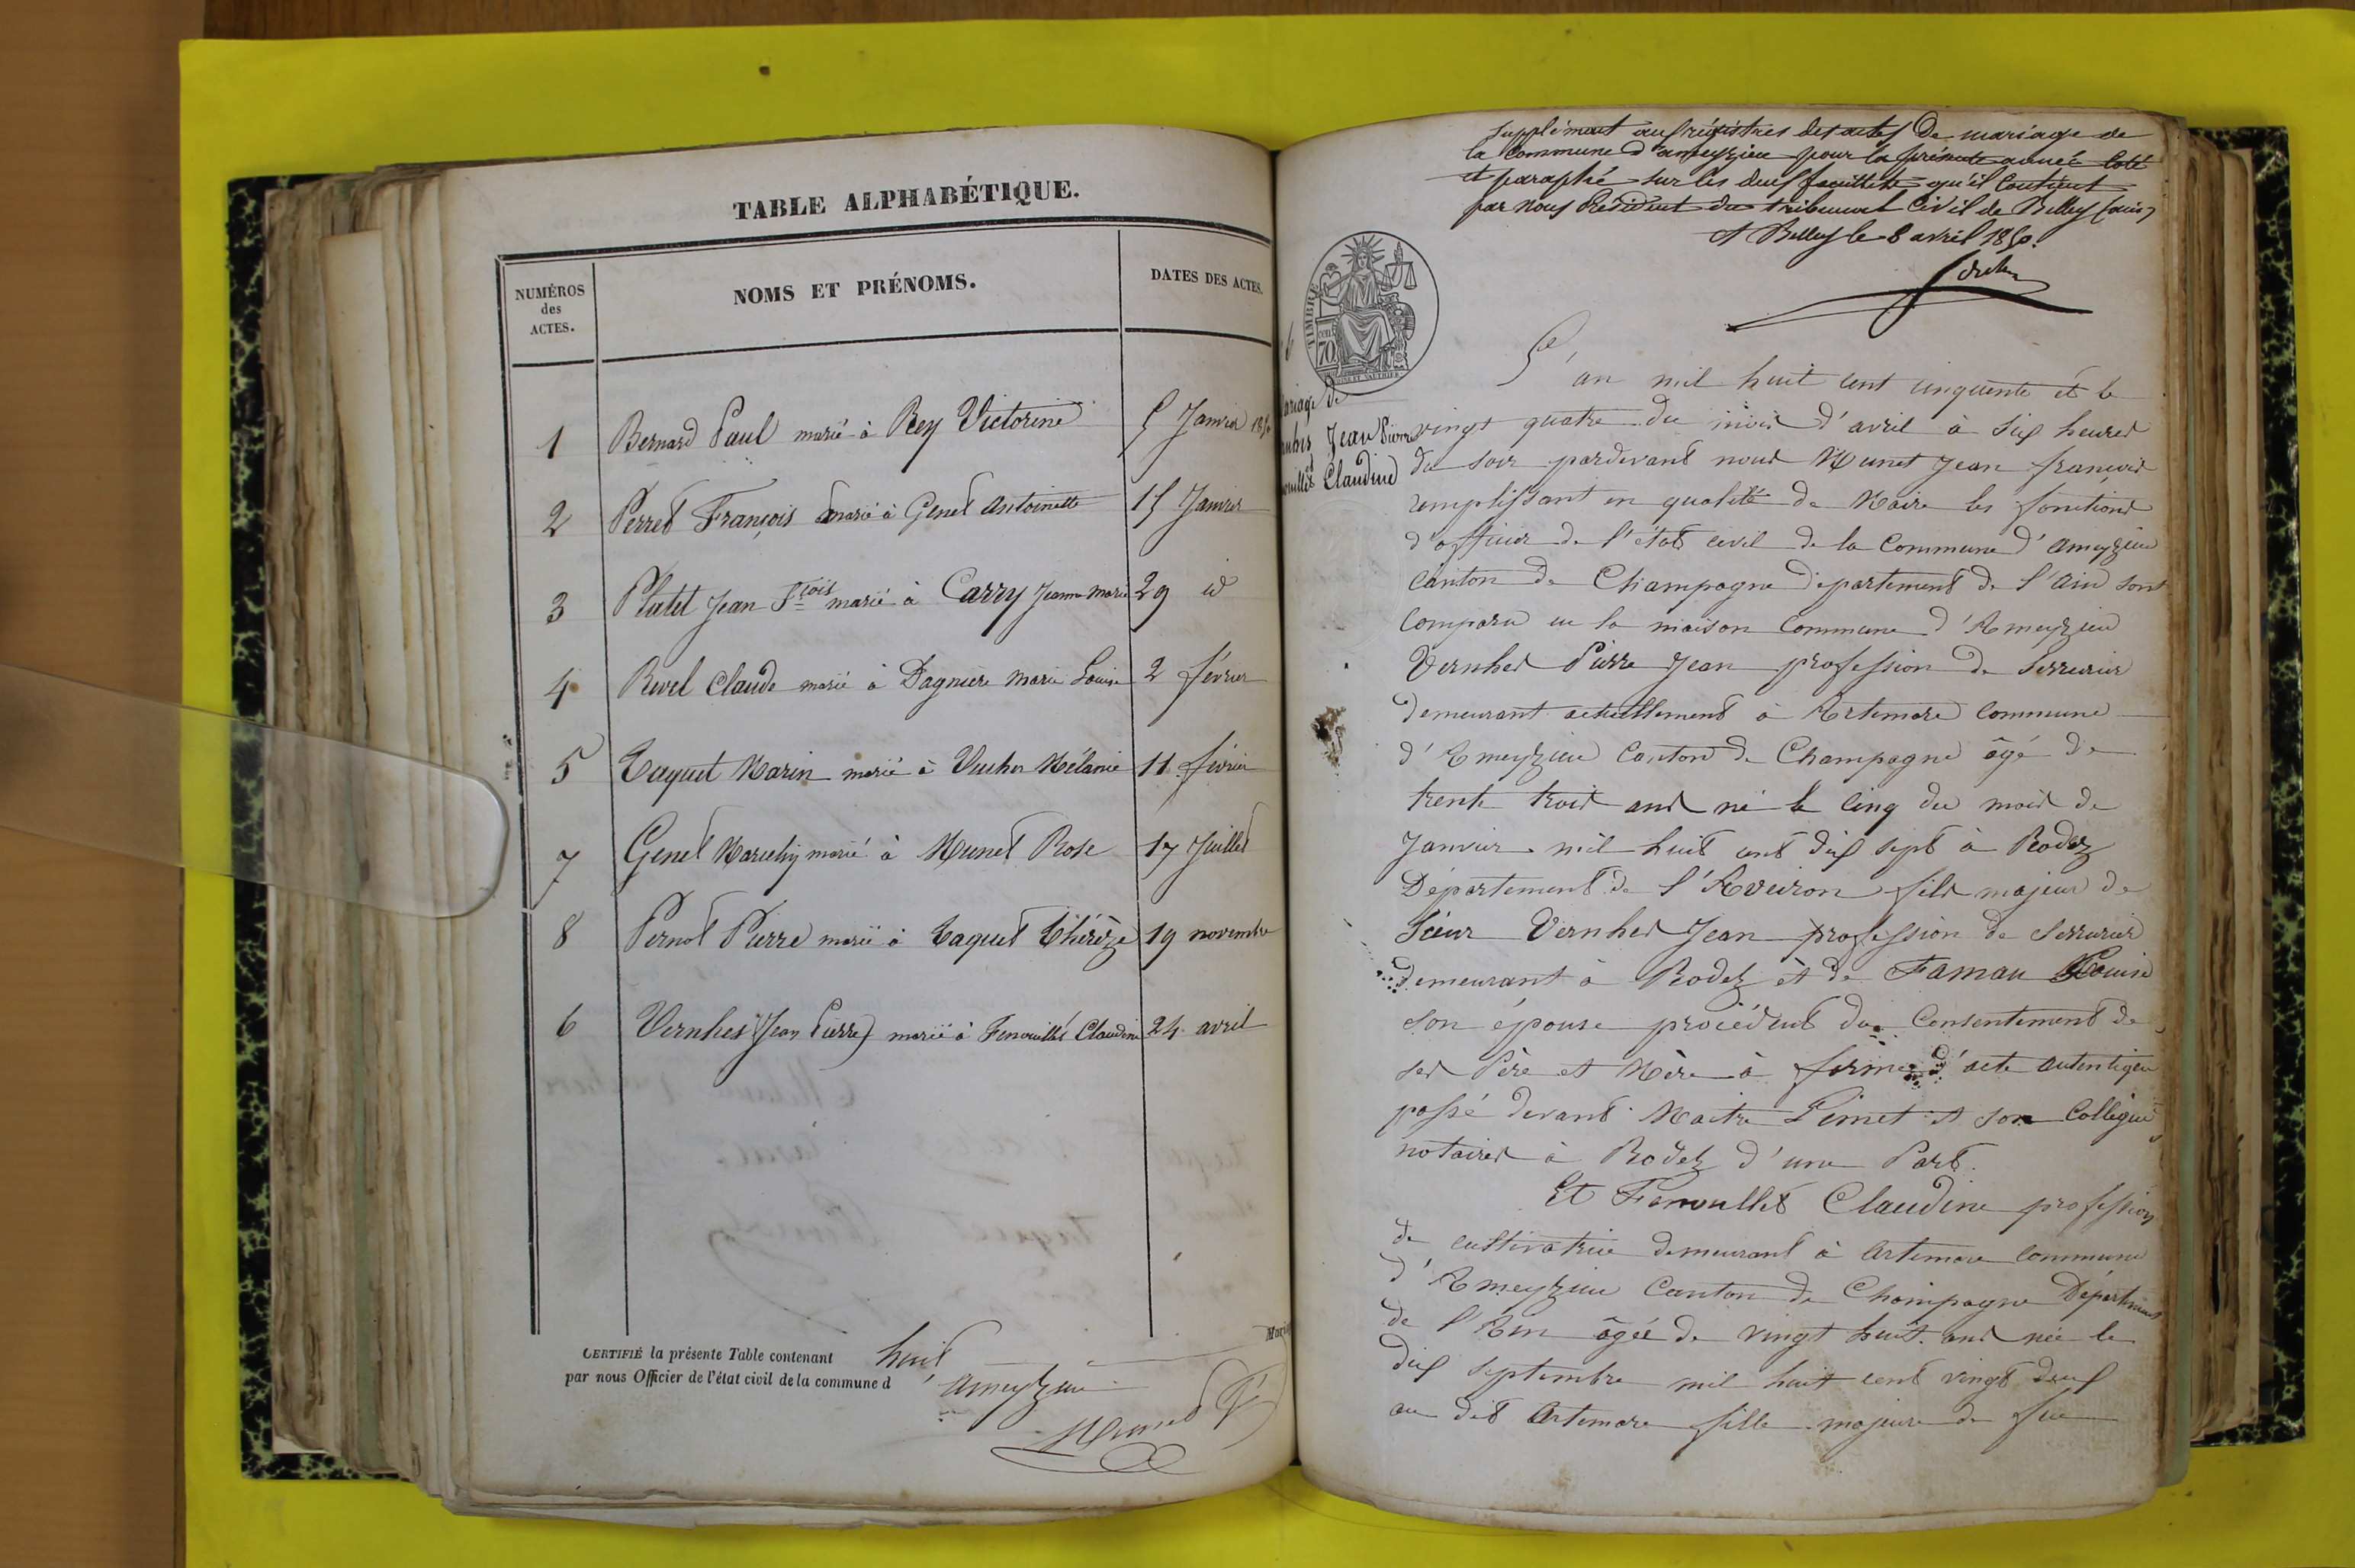 TABLE ALPHABÉTIQUE.
NUMÉROS
des
ACTES.
NOMS ET PRÉNOMS.
DATES DES ACTES.
1 Bernard Paul marié à Rey Victorine 5 Janvier 1850
2 Perret François marié à Genet Antoinette 15 Janvier
3 Platet Jean Fçois marié à Carry Jeanne Marie 29 id
4 Revel Claude marié à Dagnière Marie Louise 2 février
5 Taquet Marin marié à Vucher Mélanie 11 février
7 Genet marié à Munet Rose 17 Juillet
8 Pernot Pierre marié à Taquet Thérèze 19 novembre
6 Vernhes (Jean Pierre) marié à Fenouillet Claudine 24 avril
CERTIFIÉ la présente Table contenant huit
par nous Officier de l'état civil de la commune d'Ameyzieu
Munet
Supplément aux régistres des actes de mariage de
la Commune d'ameyzieu pour la présente année Coté
et paraphé sur les deux feuillets qu'il Contient
par nous Président du tribunal Civil de Belley (ain)
A Belley le 8 avril 1850.
TIMBRE
70
6
Mariage de
Vernhes Jean Pierre
et
Fenouillet Claudine
L'an mil huit cent cinquante et le
vingt quatre du mois d'avril à six heures
du soir pardevant nous Munet Jean françois
remplissant en qualité de Maire les fonctions
d'officier de l'état civil de la Commune d'Ameyzieu
Canton de Champagne département de l'Ain sont
Comparu en la maison Commune d'Ameyzieu
Vernhes Pierre Jean profession de Serrurier
demeurant actuellement à Artemare Commune
d'Ameyzieu Canton de Champagne âgé de
trente trois ans né le Cinq du mois de
Janvier mil huit cent dix sept à Rodez
Département de l'Aveiron fils majeur de
Sieur Vernhes Jean profession de Serrurier
demeurant à Rodez et de Famau Louise
son épouse procédent du Consentement de
ses Père et Mère à forme d'acte autentique
passé devant Maitre et son Collègue
notaires à Rodez d'une Part.
Et Fenoullet Claudine profession
de cultivatrice demeurant à Artemare Commune
d'Ameyzieu Canton de Champagne Département
de l'Ain âgée de vingt huit ans née le
dix septembre mil huit cent vingt deux
au dit Artemare fille majeure de feu